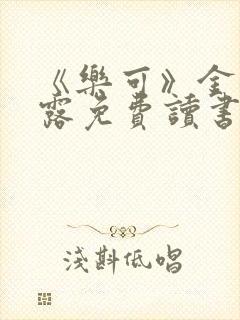 《樂可》金
露免費讀書
淺斟低唱